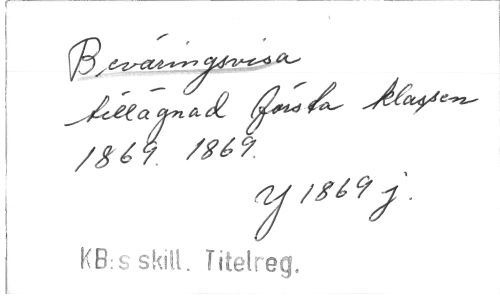 Beväringsvisa
tillägnad första klassen
1869. 1869.
Y 1869 j.
KB:s skill. Titelreg.